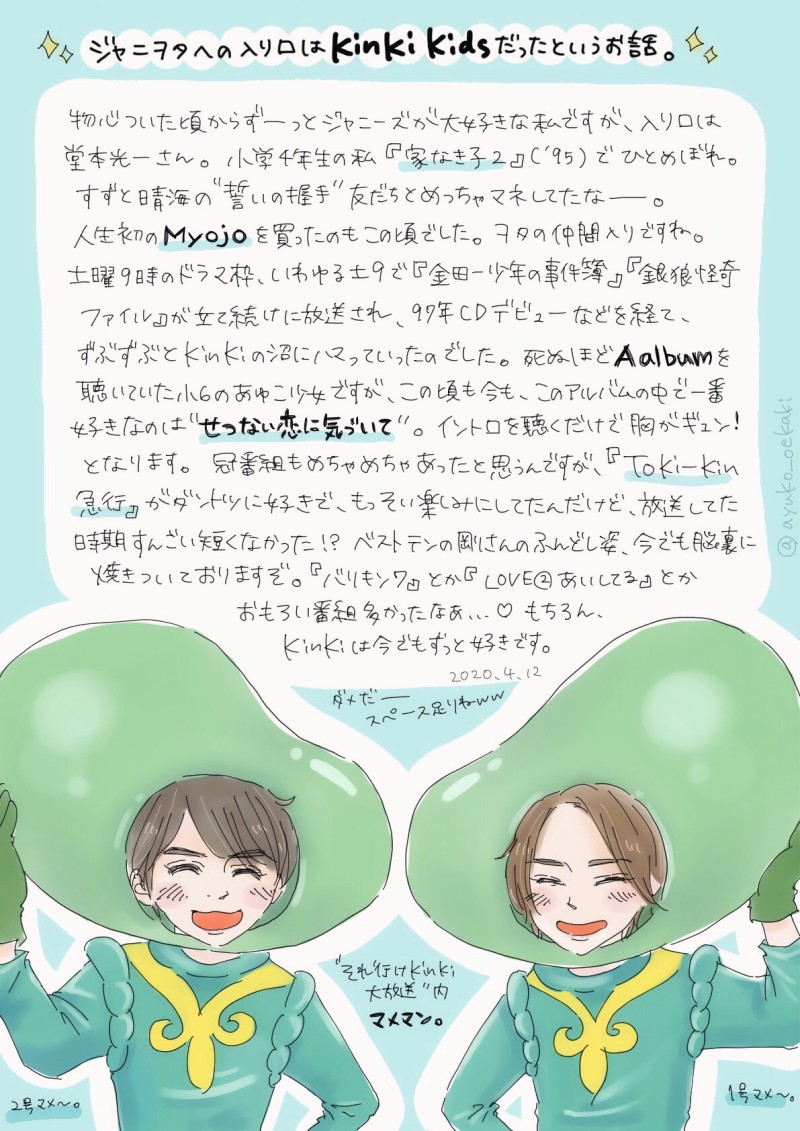 ジャニヲタへの入り口はKinKi Kidsだったというお話。
物心ついた頃からずーっとジャニーズが大好きな私ですが、入り口は
堂本光一さん。小学4年生の私『家なき子2』('95)でひとめぼれ。
すずと晴海の"誓いの握手"友だちとめっちゃマネしてたなー。
人生初のMyojoを買ったのもこの頃でした。ヲタの仲間入りですね。
土曜9時のドラマ枠、いわゆる土9で『金田一少年の事件簿』『銀狼怪奇
ファイル』が立て続けに放送され、97年CDデビューなどを経て、
ずぶずぶとKinKiの沼にハマっていったのでした。死ぬほどA albumを
聴いていた小6のあゆこ少女ですが、この頃も今も、このアルバムの中で一番
好きなのは"せつない恋に気づいて"。イントロを聴くだけで胸がギュン!
となります。冠番組もめちゃめちゃあったと思うんですが、『Toki-kin
急行』がダントツに好きで、もっそい楽しみにしてたんだけど、放送してた
時期すんごい短くなかった!?ベストテンの剛さんのふんどし姿、今でも脳裏に
焼きついておりますぞ。『バリキン7』とか『LOVE②あいしてる』とか
おもろい番組多かったなぁ...♡もちろん、
KinKiは今でもずっと好きです。
2020.4.12
ダメだー
スペース足りねww
"それ行けKinKi
大放送"内
マメマン。
2号マメ〜。
1号マメ〜。
@ayuko_oekaki